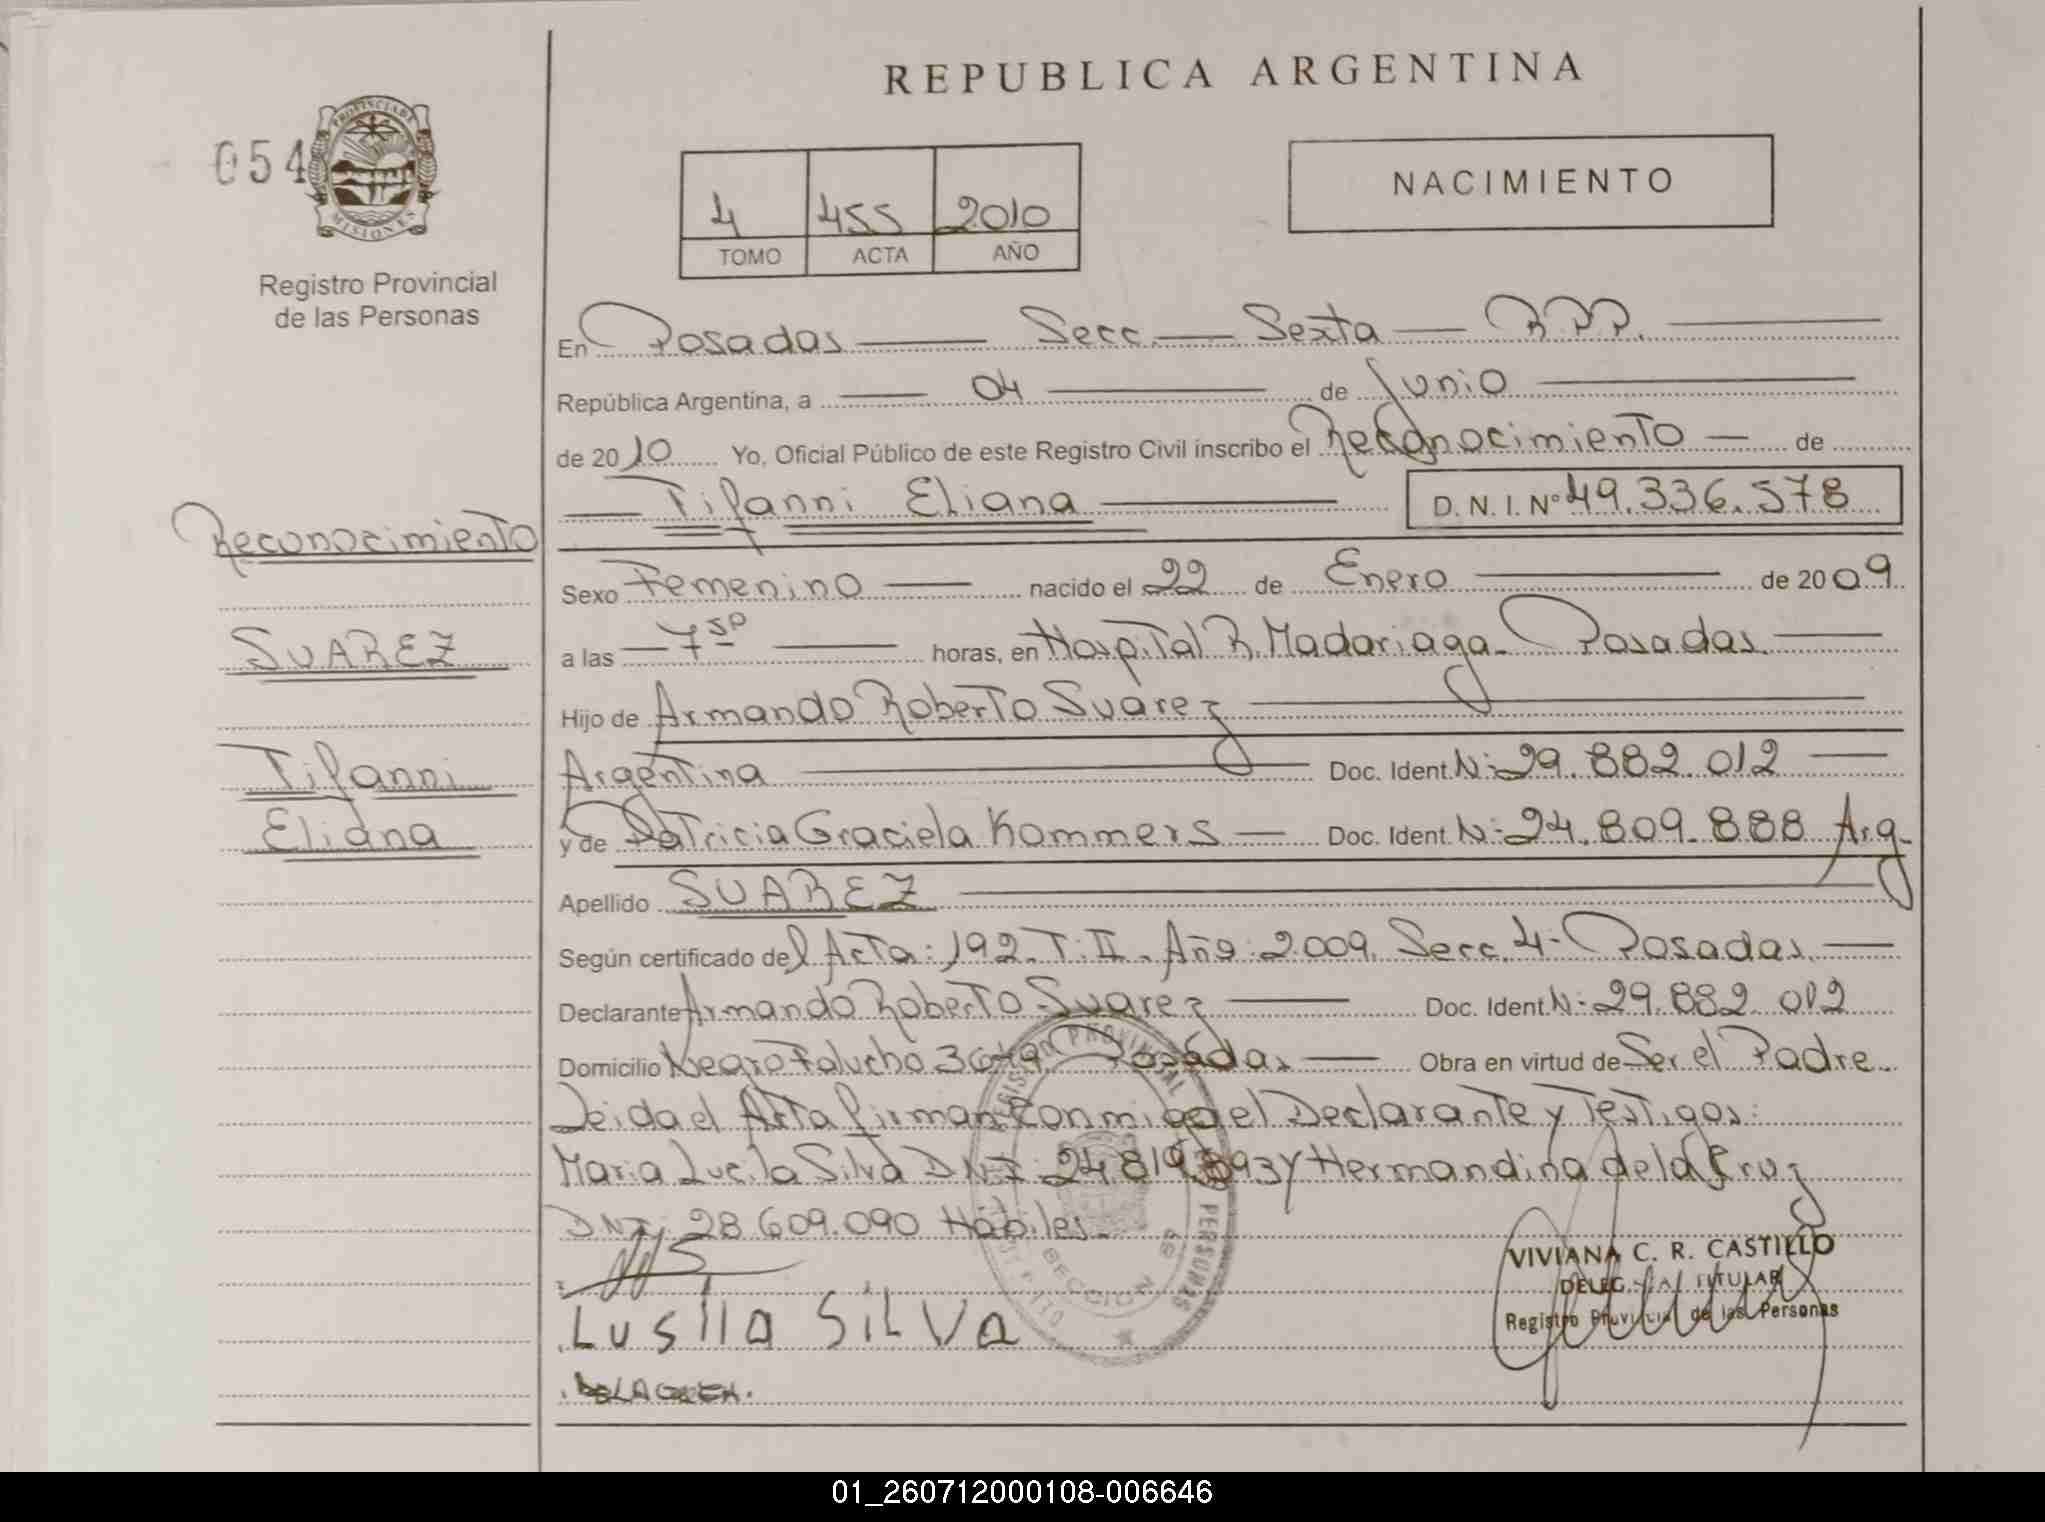 REPUBLICA ARGENTINA
054
PROVINCIA DE
MISIONES
Registro Provincial
de las Personas
4 455 2010
TOMO ACTA AÑO
NACIMIENTO
En Posadas Secc. Sexta R.P.P.
República Argentina, a 04 de Junio
de 2010 Yo, Oficial Público de este Registro Civil inscribo el Reconocimiento de
Tifanni Eliana D. N. I. Nº 49.336.578
Reconocimiento
Sexo Femenino nacido el 22 de Enero de 2009
SUAREZ
a las 7 50 horas, en Hospital R. Madariaga - Posadas.
Hijo de Armando Roberto Suarez
Tifanni
Argentina Doc. Ident. Nº 29.882.012
Eliana
y de Patricia Graciela Kommers Doc. Ident. Nº 24.809.888 Arg-
Apellido SUAREZ
Según certificado del Acta: 192. T: II. Año: 2.009. Secc. 4- Posadas.
Declarante Armando Roberto Suarez Doc. Ident. Nº 29.882.012
Domicilio Negro Falucho Posadas Obra en virtud de Ser el Padre.
Leida el Acta firman conmigo el Declarante y Testigos:
Maria Lucila Silva DNI: 24.819. y Hermandina de la Cruz
DNI: 28.609.090 Hábiles.
VIVIANA C. R. CASTILLO
TITULAR
Registro Provincial de las Personas
Lusila SiLVa
SECCION
01_260712000108-006646